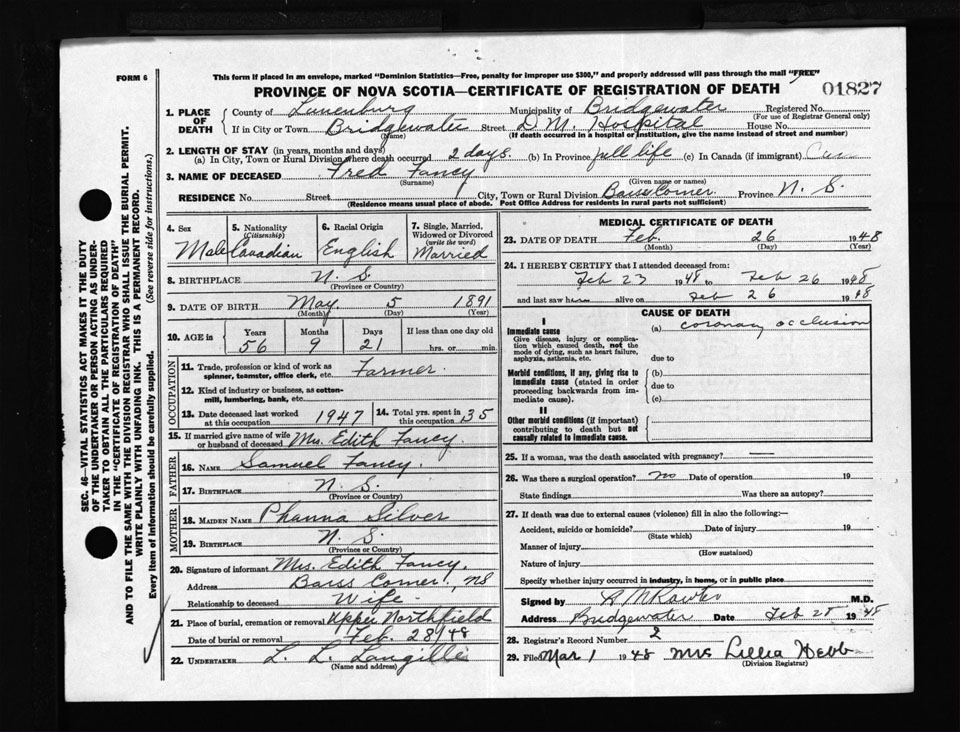 FORM 6
This form if placed in an envelope, marked "Dominion Statistics—Free, penalty for improper use $300," and properly addressed will pass through the mail "FREE"
PROVINCE OF NOVA SCOTIA—CERTIFICATE OF REGISTRATION OF DEATH
01827
1. PLACE OF DEATH
County of Lunenburg Municipality of Bridgewater Registered No.
(For use of Registrar General only)
If in City or Town Bridgewater Street D. M. Hospital House No.
(Name) (If death occurred in a hospital or institution, give the name instead of street and number)
2. LENGTH OF STAY (in years, months and days)
(a) In City, Town or Rural Division where death occurred 2 days. (b) In Province full life (c) In Canada (if immigrant)
3. NAME OF DECEASED Fred Fancy
(Surname) (Given name or names)
RESIDENCE No. Street City, Town or Rural Division Barss Corner. Province N. S.
(Residence means usual place of abode. Post Office Address for residents in rural parts not sufficient)
4. Sex
Male
5. Nationality
(Citizenship)
Canadian
6. Racial Origin
English
7. Single, Married, Widowed or Divorced
(write the word)
Married
8. BIRTHPLACE N. S.
(Province or Country)
9. DATE OF BIRTH May 5 1891
(Month) (Day) (Year)
10. AGE in Years Months Days If less than one day old
56 9 21 hrs. or min.
OCCUPATION
11. Trade, profession or kind of work as spinner, teamster, office clerk, etc. Farmer.
12. Kind of industry or business, as cotton-mill, lumbering, bank, etc.
13. Date deceased last worked at this occupation 1947
14. Total yrs. spent in this occupation 35
15. If married give name of wife or husband of deceased Mrs. Edith Fancy.
FATHER
16. NAME Samuel Fancy.
17. BIRTHPLACE N. S.
(Province or Country)
MOTHER
18. MAIDEN NAME Phanna Silver
19. BIRTHPLACE N. S.
(Province or Country)
20. Signature of informant Mrs. Edith Fancy.
Address Barss Corner, NS
Relationship to deceased Wife.
21. Place of burial, cremation or removal Upper Northfield
Date of burial or removal Feb. 28/48
22. UNDERTAKER L. L. Langille
(Name and address)
MEDICAL CERTIFICATE OF DEATH
23. DATE OF DEATH Feb. 26 1948
(Month) (Day) (Year)
24. I HEREBY CERTIFY that I attended deceased from:
Feb 23 1948 to Feb 26 1948
and last saw him alive on Feb 26 1948
CAUSE OF DEATH
I
Immediate cause
Give disease, injury or complication which caused death, not the mode of dying, such as heart failure, asphyxia, asthenia, etc.
(a) coronary occlusion
due to
Morbid conditions, if any, giving rise to immediate cause (stated in order proceeding backwards from immediate cause).
(b)
due to
(c)
II
Other morbid conditions (if important) contributing to death but not causally related to immediate cause.
25. If a woman, was the death associated with pregnancy? —
26. Was there a surgical operation? no Date of operation 19
State findings Was there an autopsy?
27. If death was due to external causes (violence) fill in also the following:—
Accident, suicide or homicide? Date of injury 19
(State which)
Manner of injury
(How sustained)
Nature of injury
Specify whether injury occurred in industry, in home, or in public place
Signed by M.D.
Address Bridgewater Date Feb 28 1948
28. Registrar's Record Number 2
29. Filed Mar 1 1948 Mrs Lillia Hebb
(Division Registrar)
SEC. 46—VITAL STATISTICS ACT MAKES IT THE DUTY
OF THE UNDERTAKER OR PERSON ACTING AS UNDERTAKER TO OBTAIN ALL THE PARTICULARS REQUIRED
IN THE "CERTIFICATE OF REGISTRATION OF DEATH"
AND TO FILE THE SAME WITH THE DIVISION REGISTRAR WHO SHALL ISSUE THE BURIAL PERMIT.
WRITE PLAINLY WITH UNFADING INK. THIS IS A PERMANENT RECORD.
Every item of information should be carefully supplied. (See reverse side for instructions.)